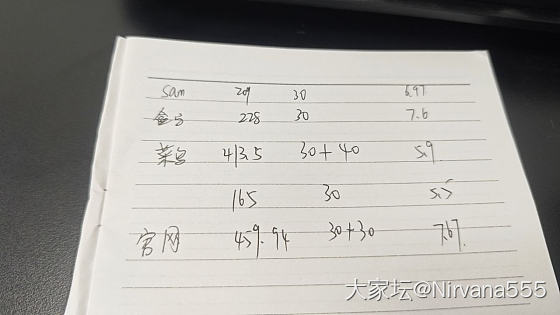 Sam 209 30 6.97
盒马 228 30 7.6
菜鸟 413.5 30+40 5.9
165 30 5.5
官网 459.94 30+30 7.67
大家坛@Nirvana555